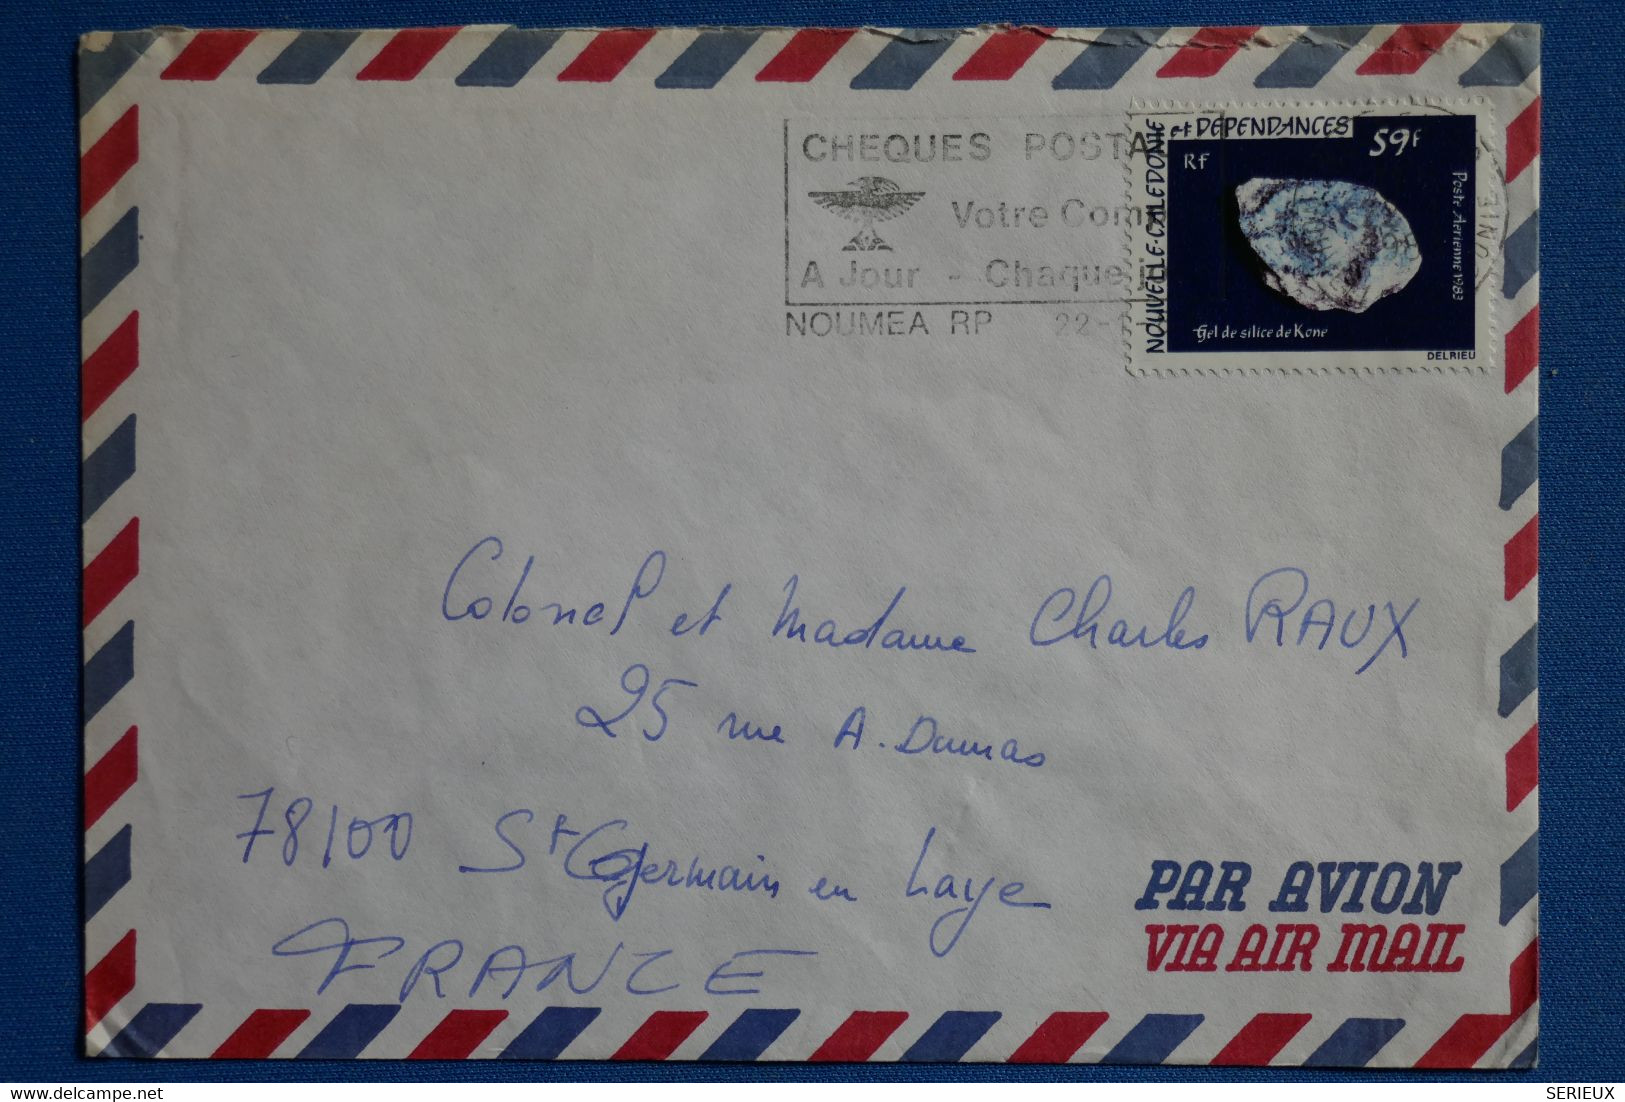 CHEQUES POSTA
Votre Comp
A Jour - Chaque j
NOUMEA RP 22-1-
NOUVELLE-CALEDONIE
et DEPENDANCES
RF
59F
Poste Aérienne 1983
Gel de silice de Kone
DELRIEU
Colonel et Madame Charles RAUX
25 rue A. Dumas
78100 St Germain en Laye
FRANCE
PAR AVION
VIA AIR MAIL
delcampe.net
SERIEUX